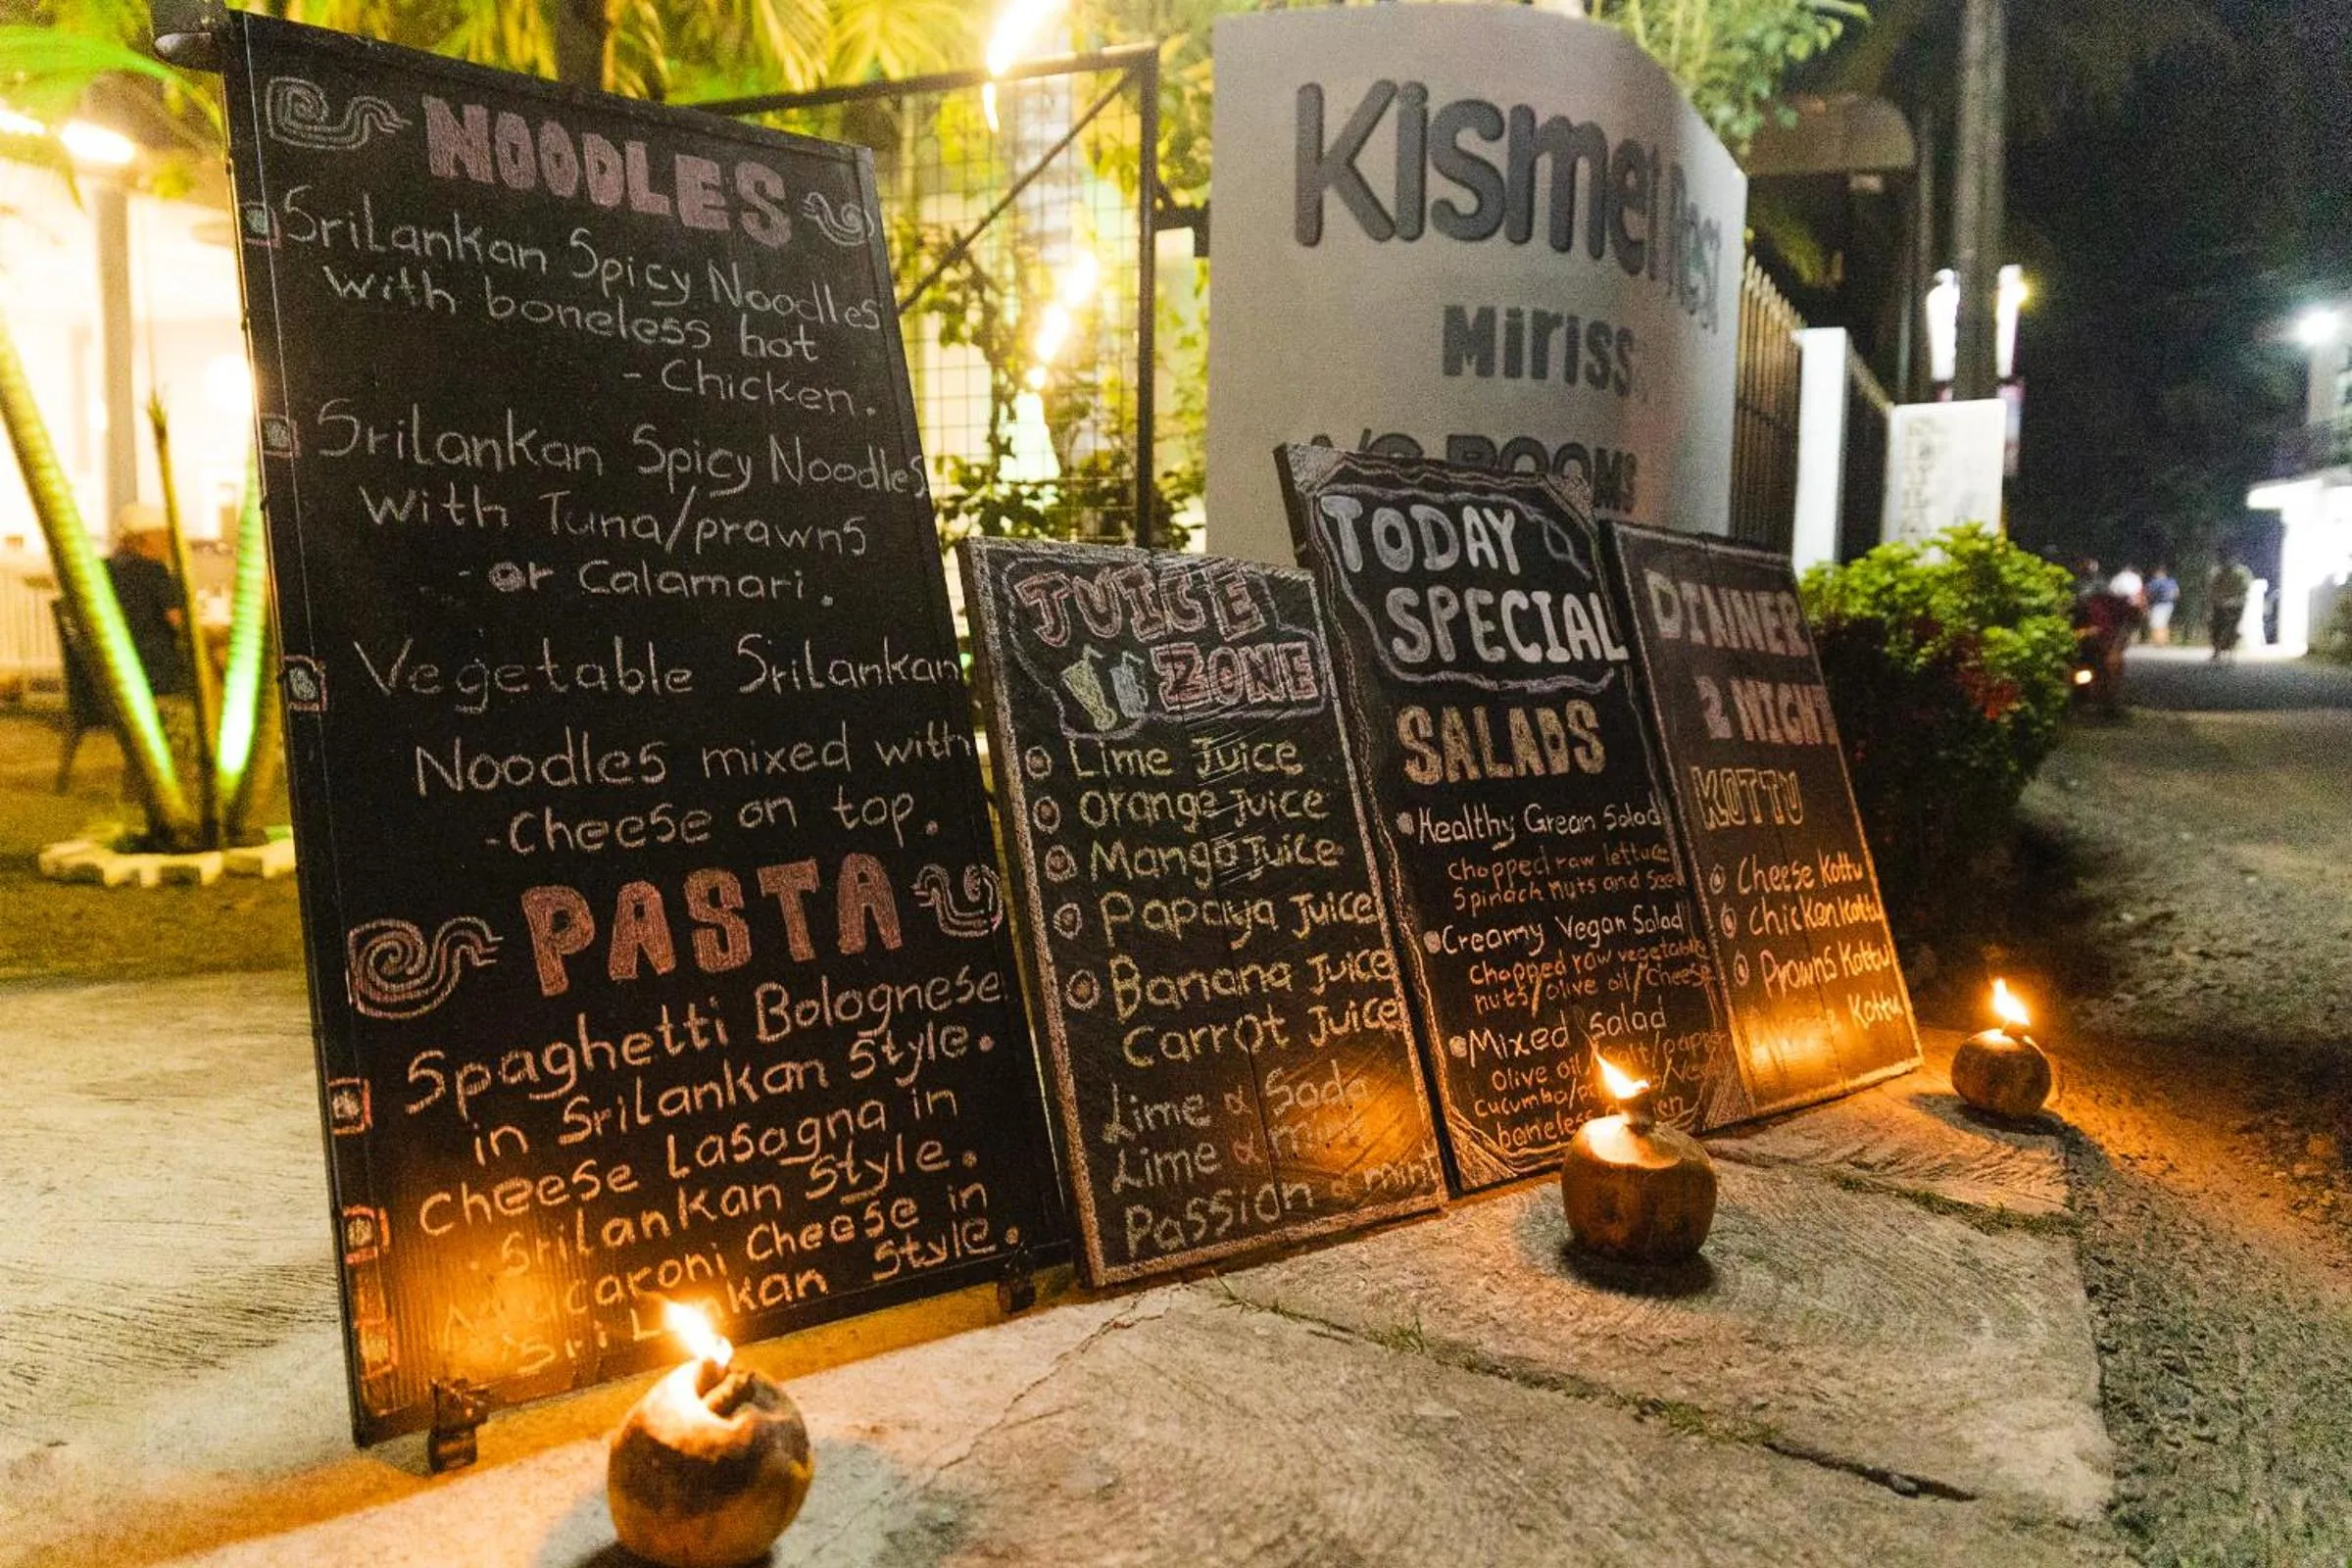 NOODLES
SriLankan Spicy Noodles
with boneless hot
- Chicken.
SriLankan Spicy Noodles
with Tuna/prawns
- or Calamari.
Vegetable SriLankan
Noodles mixed with
- Cheese on top.
PASTA
Spaghetti Bolognese
in SriLankan Style.
Cheese Lasagna in
SriLankan Style.
Macaroni Cheese in
SriLankan Style.
JUICE
ZONE
Lime Juice
Orange Juice
Mango Juice
Papaya Juice
Banana Juice
Carrot Juice
Lime & Soda
Lime & mint
Passion & mint
Kismet Rest
Miriss
A/C ROOMS
TODAY
SPECIAL
SALADS
Healthy Grean Salad
Chopped raw lettuce
Spinach nuts and
Creamy Vegan Salad
Chopped raw vegetable
nuts/olive oil/Cheese
Mixed Salad
Olive oil
Cucumba/
boneless
DINNER
2 NIGHT
KOTTU
Cheese Kottu
Chicken Kottu
Prawns Kottu
Kottu